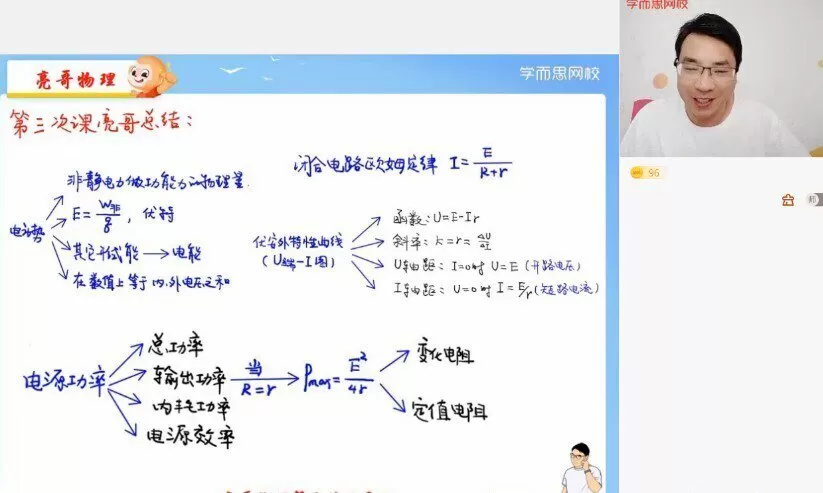 学而思网校
亮哥物理
学而思网校
第三次课亮哥总结:
电动势
非静电力做功能力的物理量
E=W非/q, 伏特
其它形式能→电能
在数值上等于内、外电压之和
闭合电路欧姆定律 I=E/(R+r)
伏安外特性曲线
(U端-I图)
函数:U=E-Ir
斜率:k=r=ΔU/ΔI
U轴截距:I=0时 U=E(开路电压)
I轴截距:U=0时 I=E/r(短路电流)
电源功率
总功率
输出功率 当R=r → Pmax=E²/4r
内耗功率
电源效率
变化电阻
定值电阻
96